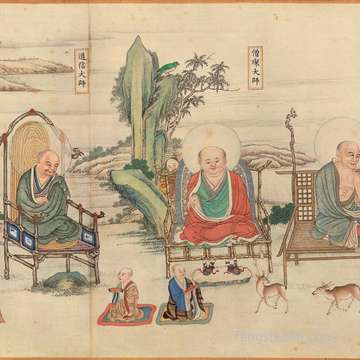 僧璨大師
道信大師
TengshuArt.com